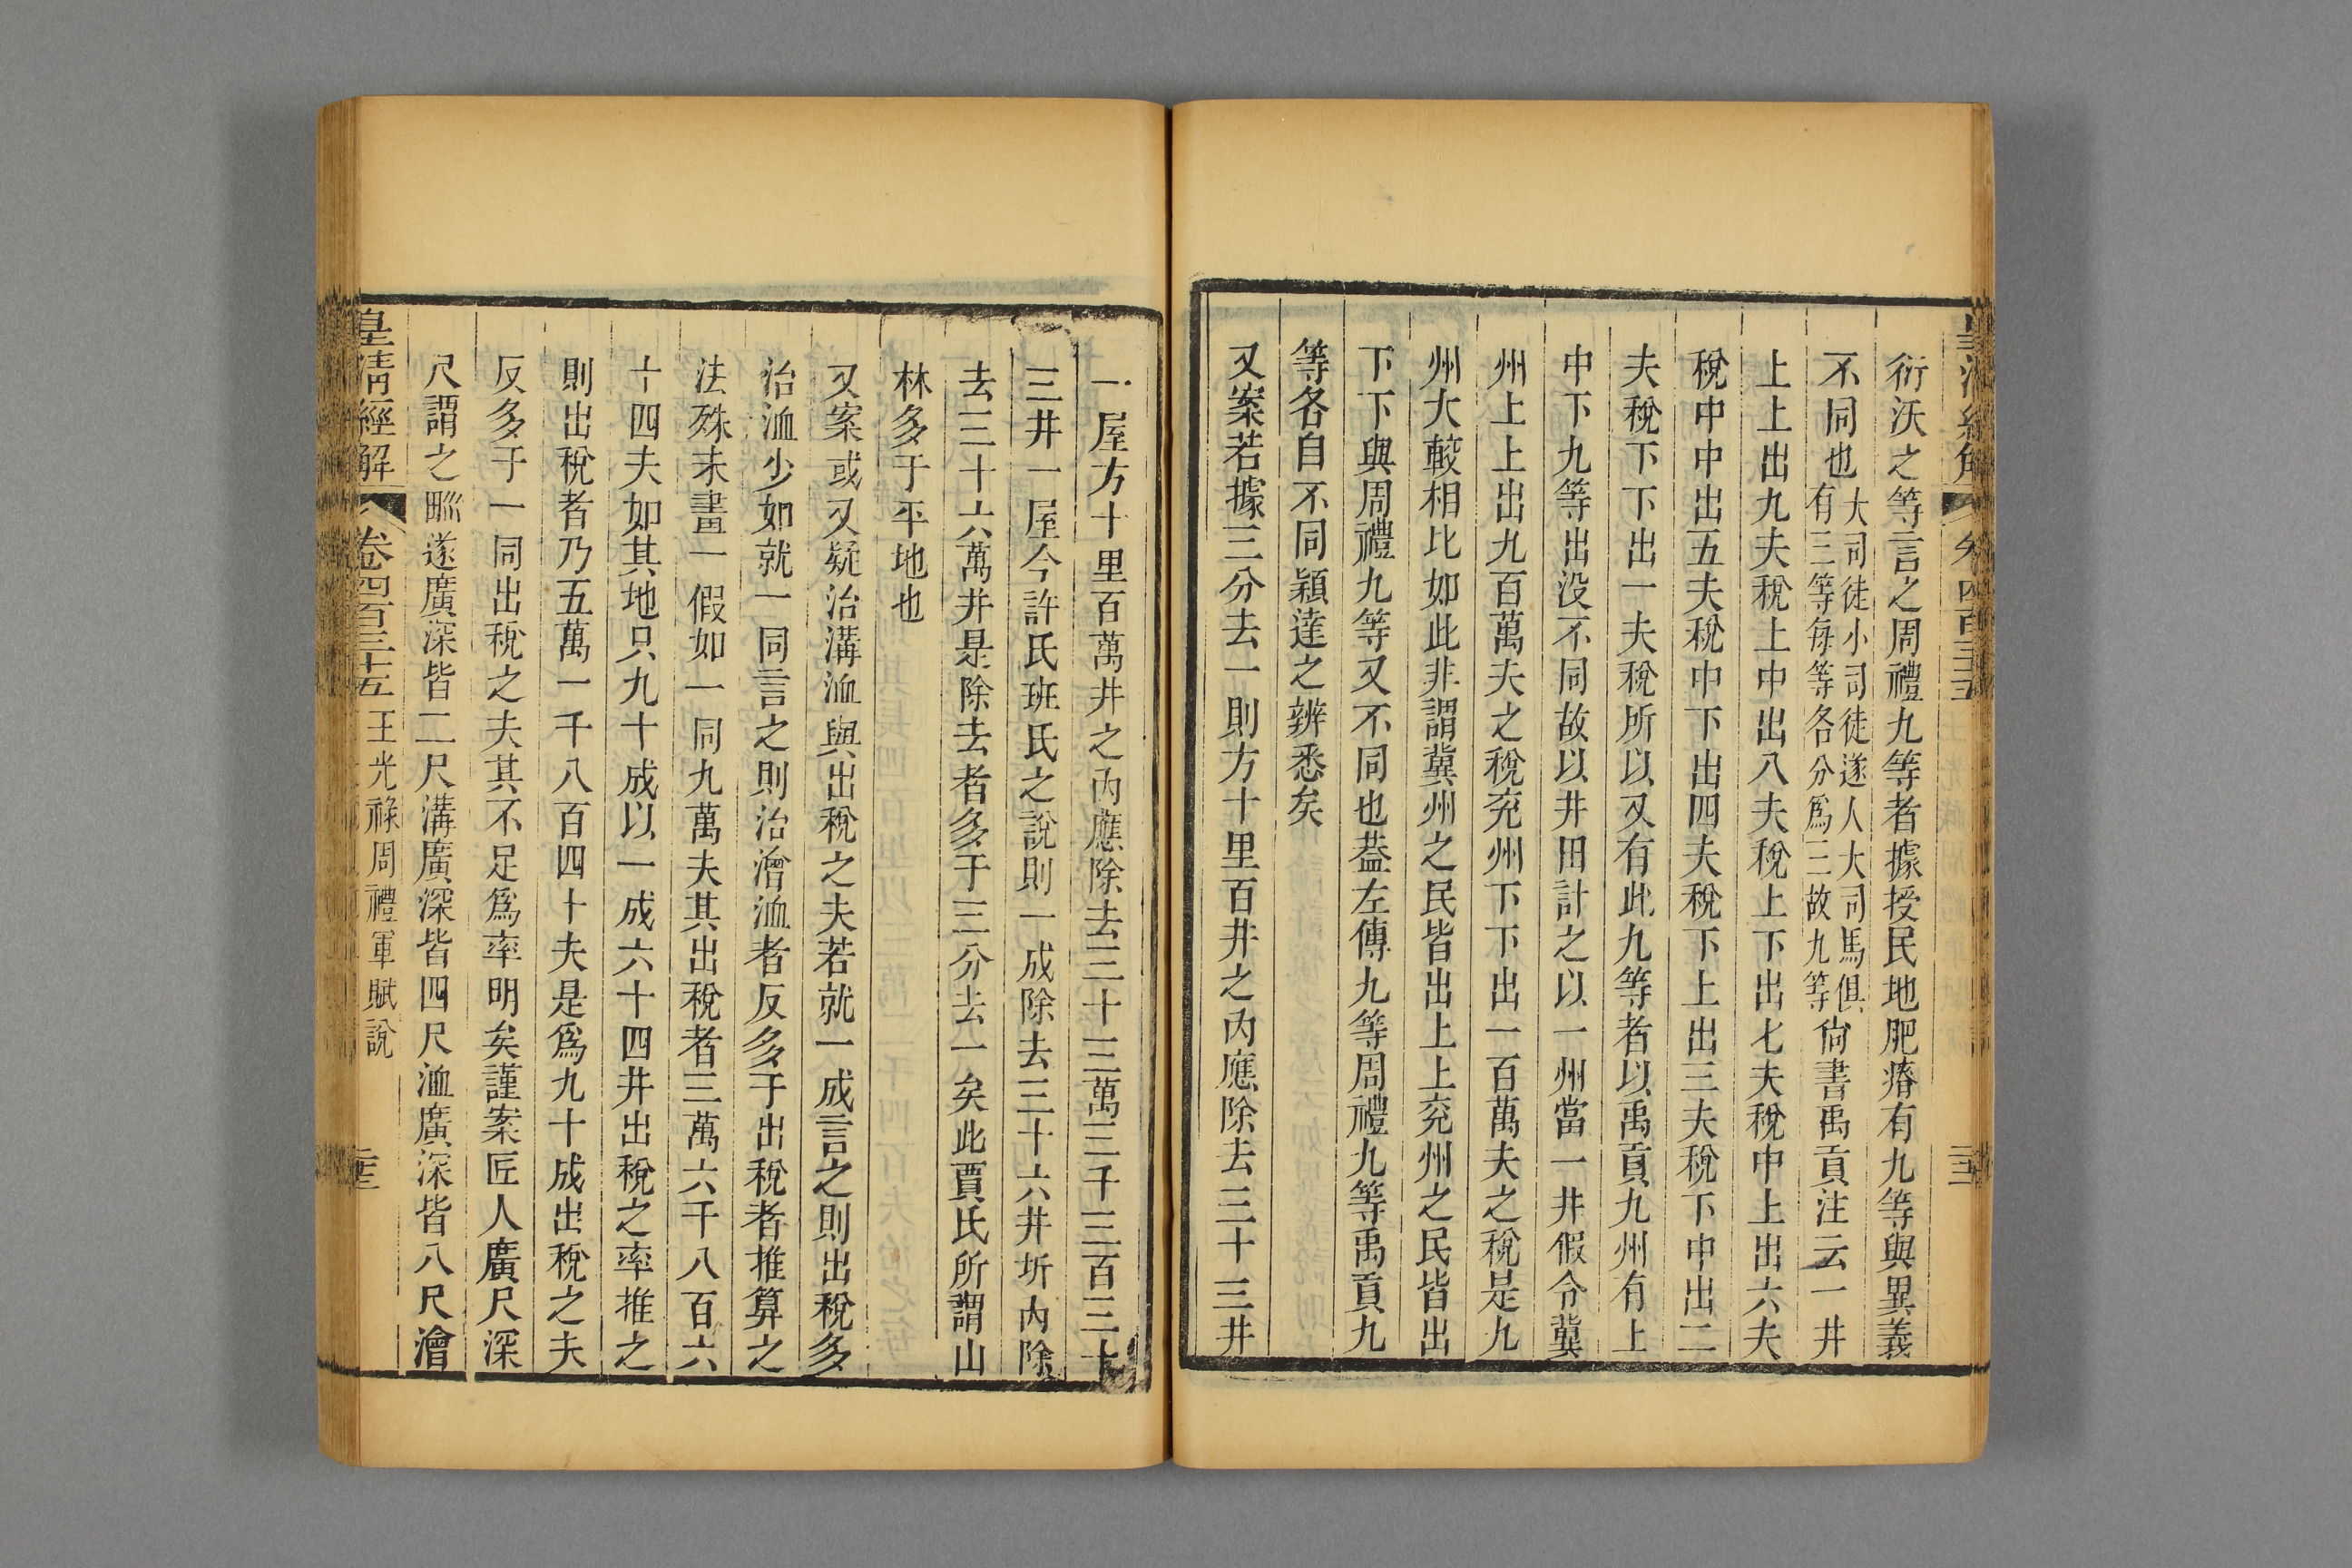 衍沃之等言之周禮九等者據授民地肥瘠有九等與異義
不同也大司徒小司徒遂人大司馬俱有三等每等各分爲三故九等尙書禹貢注云一井
上上出九夫稅上中出八夫稅上下出七夫稅中上出六夫
稅中中出五夫稅中下出四夫稅下上出三夫稅下中出二
夫稅下下出一夫稅所以又有此九等者以禹貢九州有上
中下九等出沒不同故以井田計之以一州當一井假令冀
州上上出九百萬夫之稅兖州下下出一百萬夫之稅是九
州大較相比如此非謂冀州之民皆出上上兖州之民皆出
下下與周禮九等又不同也葢左傳九等周禮九等禹貢九
等各自不同穎達之辨悉矣
又案若據三分去一則方十里百井之內應除去三十三井
一屋方十里百萬井之內應除去三十三萬三千三百三十
三井一屋今許氏班氏之說則一成除去三十六井圻內除
去三十六萬井是除去者多于三分去一矣此賈氏所謂山
林多于平地也
又案或又疑治溝洫與出稅之夫若就一成言之則出稅多
治洫少如就一同言之則治澮洫者反多于出稅者推算之
法殊未畫一假如一同九萬夫其出稅者三萬六千八百六
十四夫如其地只九十成以一成六十四井出稅之率推之
則出稅者乃五萬一千八百四十夫是爲九十成出稅之夫
反多于一同出稅之夫其不足爲率明矣謹案匠人廣尺深
尺謂之𤰕遂廣深皆二尺溝廣深皆四尺洫廣深皆八尺澮
皇清經解 卷四百三十五 王光祿周禮軍賦說